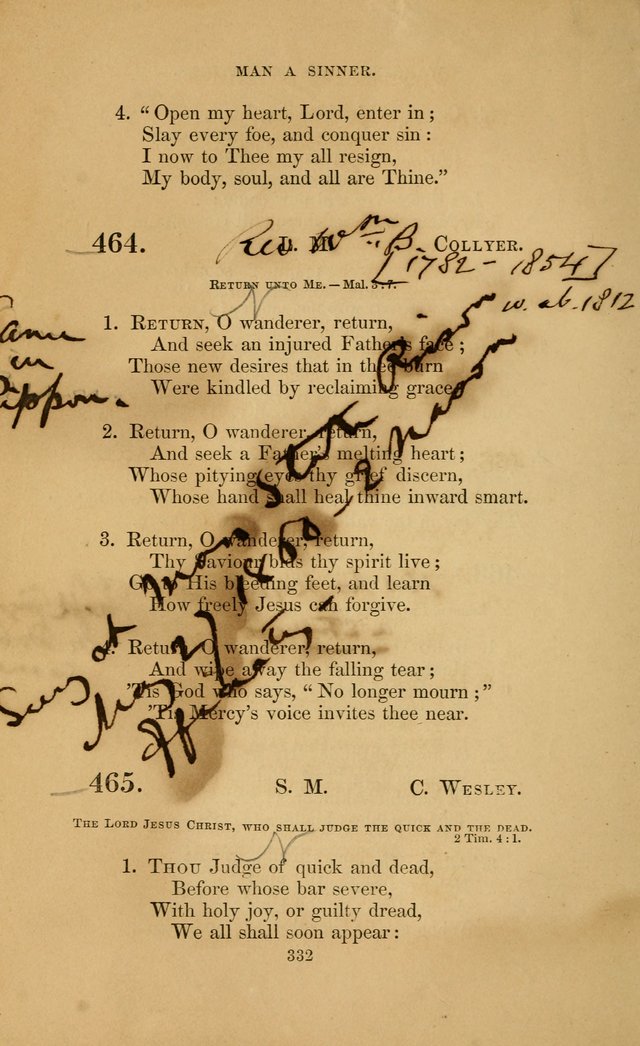 MAN A SINNER.
4. “Open my heart, Lord, enter in;
Slay every foe, and conquer sin:
I now to Thee my all resign,
My body, soul, and all are Thine.”
464. L. M. Collyer.
Rev Wm B.
[1782 - 1854]
w. ab. 1812
Return unto Me. — Mal. 3:7.
1. Return, O wanderer, return,
And seek an injured Father's face;
Those new desires that in thee burn
Were kindled by reclaiming grace.
in
Rippon.
2. Return, O wanderer, return,
And seek a Father's melting heart;
Whose pitying eyes thy grief discern,
Whose hand shall heal thine inward smart.
3. Return, O wanderer, return,
Thy Saviour bids thy spirit live;
Go to His bleeding feet, and learn
How freely Jesus can forgive.
4. Return, O wanderer, return,
And wipe away the falling tear;
'Tis God who says, “No longer mourn;”
'Tis Mercy's voice invites thee near.
Sung at Mass State Prison
May 2/1868, 2 Nason
465. S. M. C. Wesley.
The Lord Jesus Christ, who shall judge the quick and the dead.
2 Tim. 4:1.
1. Thou Judge of quick and dead,
Before whose bar severe,
With holy joy, or guilty dread,
We all shall soon appear:
332